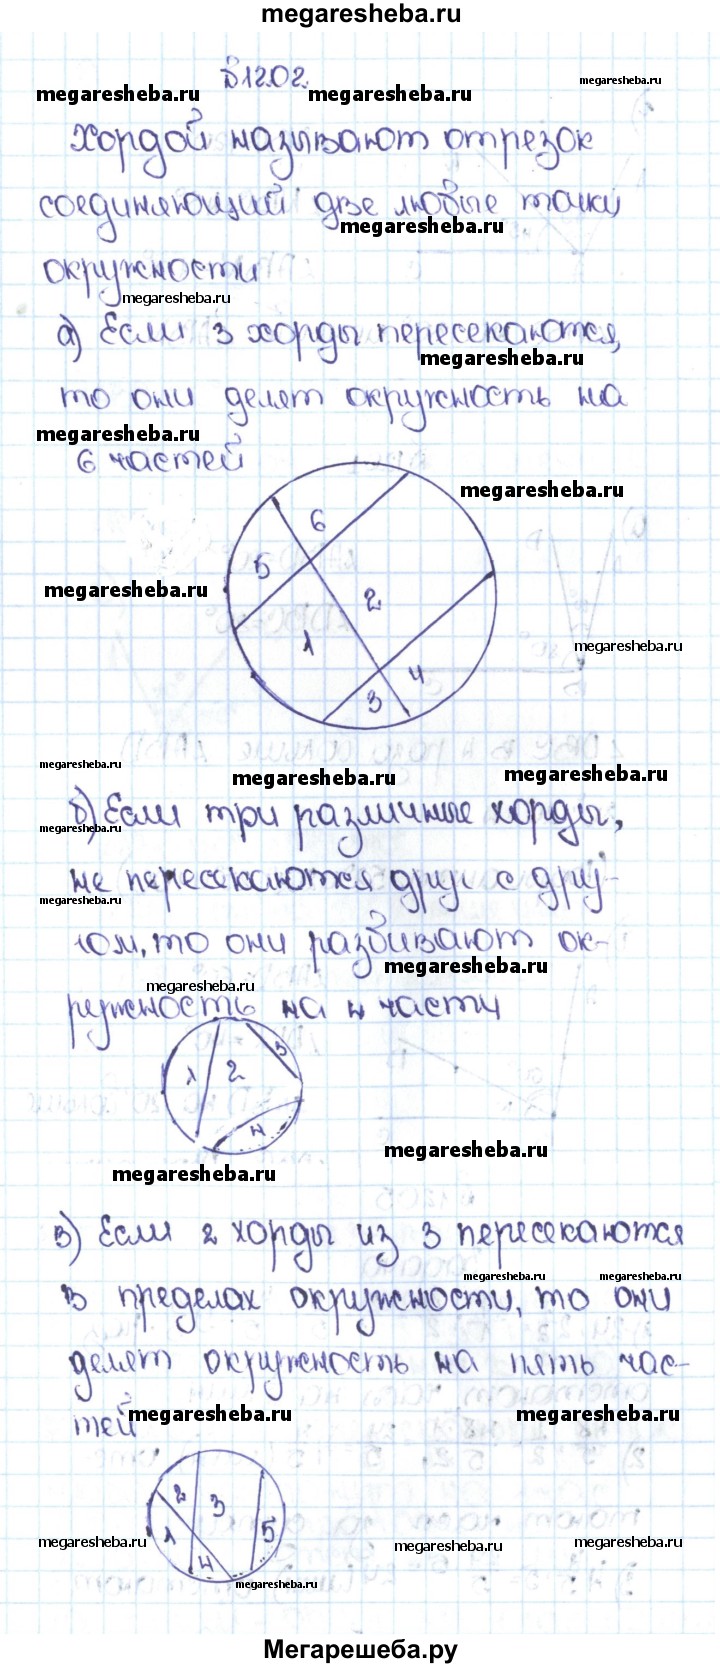 megaresheba.ru
Б1202.
megaresheba.ru
megaresheba.ru megaresheba.ru
Хордой называют отрезок
соединяющий две любые точки
megaresheba.ru
окружности
megaresheba.ru
а) Если 3 хорды пересекаются,
megaresheba.ru
то они делят окружность на
megaresheba.ru
6 частей
megaresheba.ru
6
5
2
megaresheba.ru
1
megaresheba.ru
4
3
megaresheba.ru
megaresheba.ru megaresheba.ru
б) Если три различные хорды,
megaresheba.ru
не пересекаются друг с дру-
megaresheba.ru
гом, то они разбивают ок-
megaresheba.ru
megaresheba.ru
ружность на 4 части
1 2 3
4
megaresheba.ru
megaresheba.ru
в) Если 2 хорды из 3 пересекаются
megaresheba.ru megaresheba.ru
в пределах окружности, то они
делят окружность на пять час-
тей
megaresheba.ru megaresheba.ru
2 3
1 5
4
megaresheba.ru megaresheba.ru megaresheba.ru
megaresheba.ru
Мегарешеба.ру